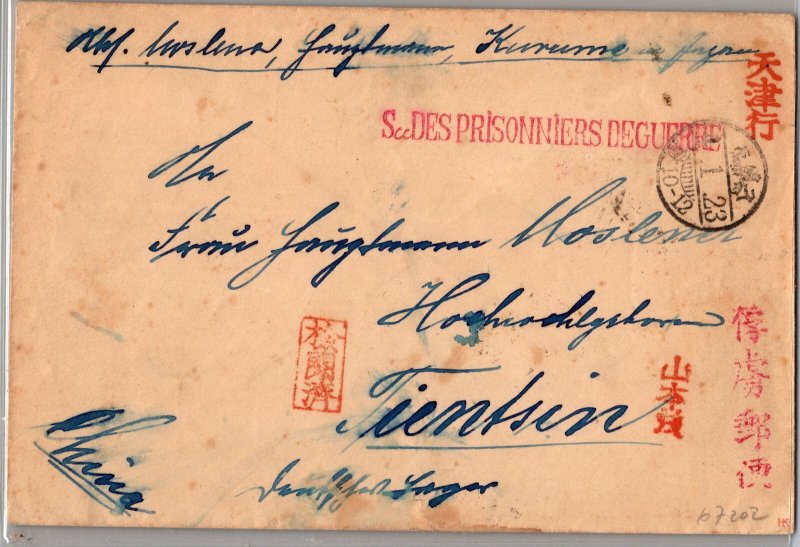 Abs. Moslener, Hauptmann, Kurume in Japan
天津行
Scc DES PRISONNIERS DE GUERRE
1. 23
An
Frau Hauptmann Moslener
Hochwohlgeboren
俘虜郵便
Tientsin
China
Deutsches Lager
67202
HK